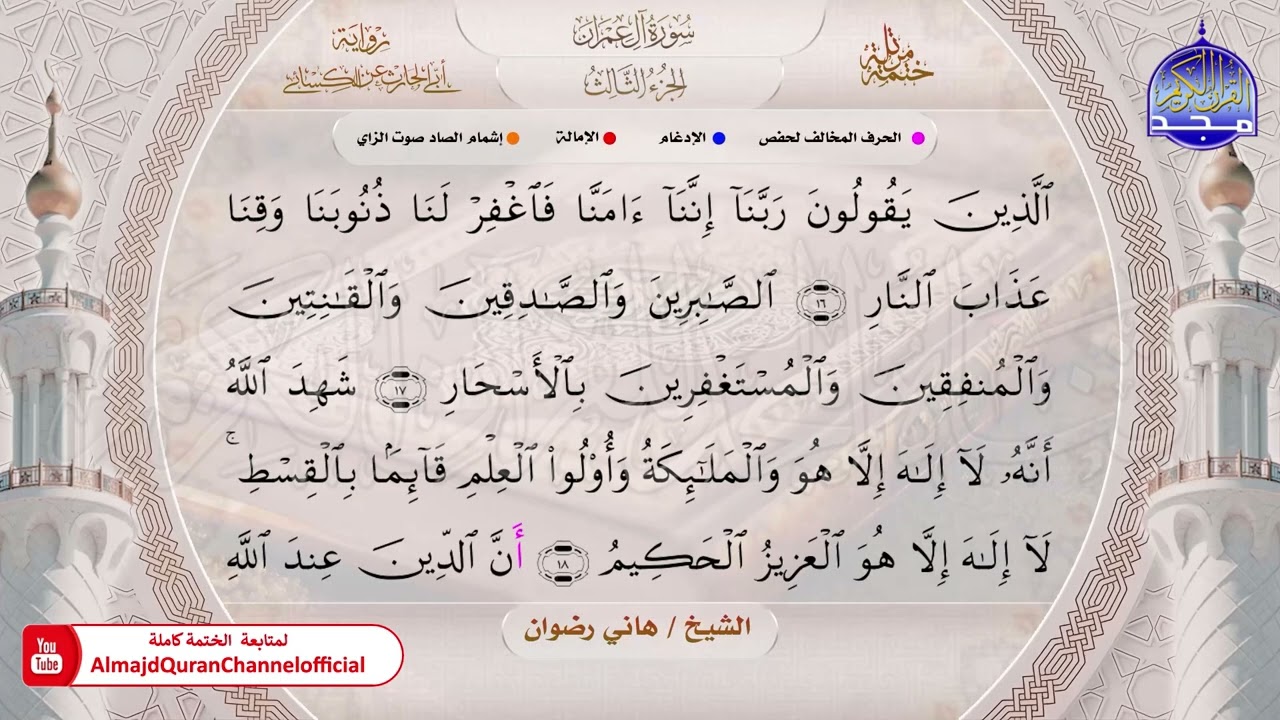 سُورَةُ آلِ عِمْرَانَ
الجُزْءُ الثَّالِثُ
ختمة مرتلة
رواية
أبي الحارث عن الكسائي
القرآن الكريم
مجد
الحرف المخالف لحفص
الإدغام
الإمالة
إشمام الصاد صوت الزاي
ٱلَّذِينَ يَقُولُونَ رَبَّنَآ إِنَّنَآ ءَامَنَّا فَٱغْفِرْ لَنَا ذُنُوبَنَا وَقِنَا
عَذَابَ ٱلنَّارِ ١٦ ٱلصَّٰبِرِينَ وَٱلصَّٰدِقِينَ وَٱلْقَٰنِتِينَ
وَٱلْمُنفِقِينَ وَٱلْمُسْتَغْفِرِينَ بِٱلْأَسْحَارِ ١٧ شَهِدَ ٱللَّهُ
أَنَّهُۥ لَآ إِلَٰهَ إِلَّا هُوَ وَٱلْمَلَٰٓئِكَةُ وَأُو۟لُوا۟ ٱلْعِلْمِ قَآئِمَۢا بِٱلْقِسْطِ ۚ
لَآ إِلَٰهَ إِلَّا هُوَ ٱلْعَزِيزُ ٱلْحَكِيمُ ١٨ أَنَّ ٱلدِّينَ عِندَ ٱللَّهِ
الشيخ / هاني رضوان
You Tube
لمتابعة الختمة كاملة
AlmajdQuranChannelofficial